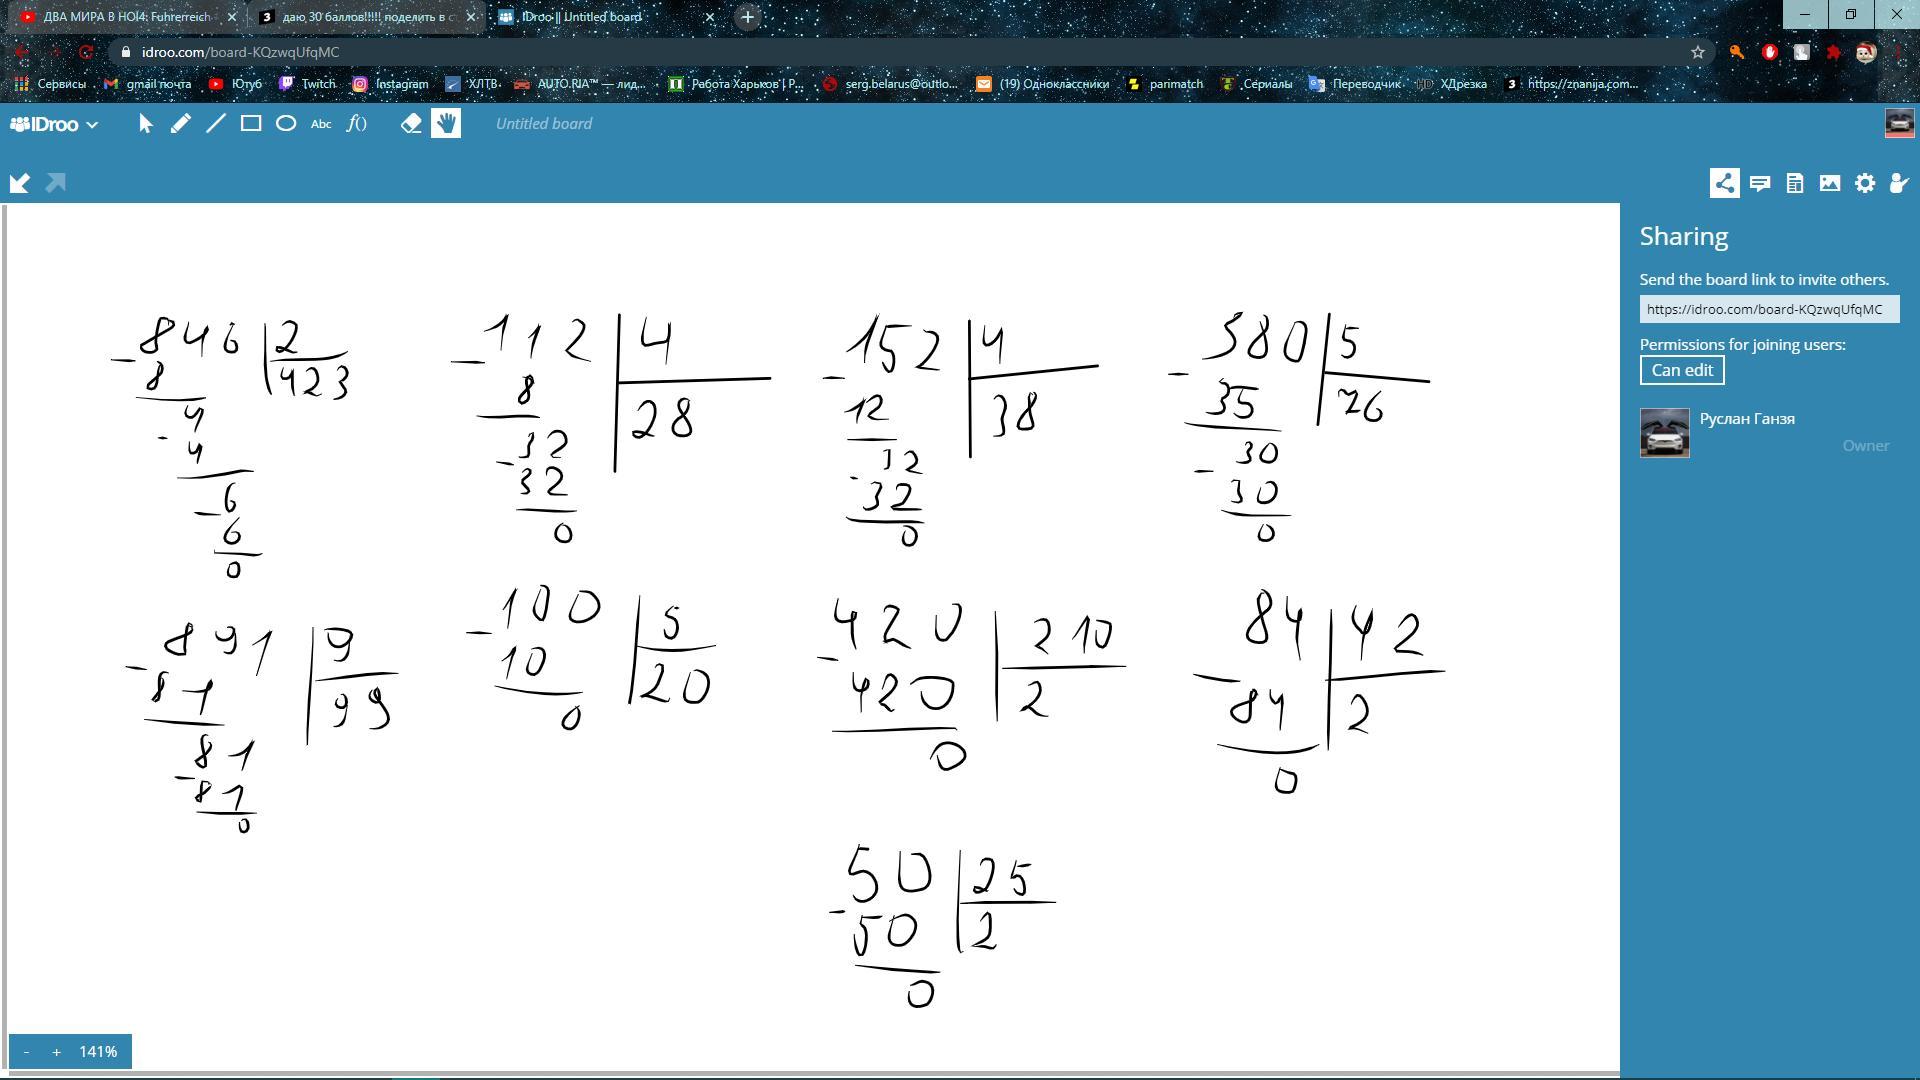 ДВА МИРА В HOI4: Fuhrerreich
даю 30 баллов!!!!! поделить в ст
IDroo || Untitled board
idroo.com/board-KQzwqUfqMC
Сервисы
gmail почта
Ютуб
Twitch
Instagram
ХЛТВ
AUTO.RIA™ — лид...
Работа Харьков | Р...
serg.belarus@outlo...
(19) Одноклассники
parimatch
Сериалы
Переводчик
HD ХДрезка
https://znanija.com...
IDroo
Abc
f()
Untitled board
Sharing
Send the board link to invite others.
https://idroo.com/board-KQzwqUfqMC
Permissions for joining users:
Can edit
Руслан Ганзя
Owner
-846 2
8 423
4
-4
6
-6
0
-112 4
8 28
32
-32
0
-152 4
12 38
32
-32
0
-380 5
35 76
30
-30
0
-891 9
81 99
81
-81
0
-100 5
10 20
0
-420 210
420 2
0
-84 42
84 2
0
-50 25
50 2
0
- + 141%